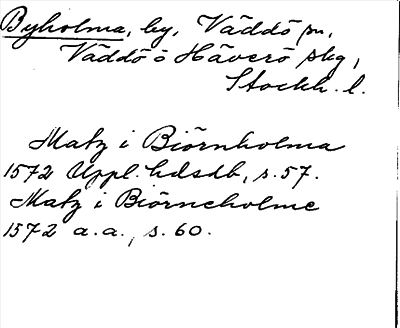 Byholma, by, Väddö sn,
Väddö o Häverö skg,
Stockh. l.
Matz i Biörnholma
1572 Uppl. hdsdb, s. 57.
Matz i Biörneholme
1572 a.a., s. 60.